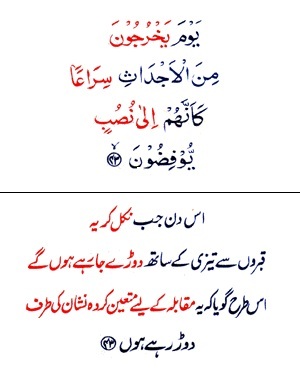 يَوْمَ يَخْرُجُوْنَ
مِنَ الْاَجْدَاثِ سِرَاعًا
كَاَنَّهُمْ اِلٰى نُصُبٍ
يُّوْفِضُوْنَ ۙ﴿۴۳﴾
اس دن جب نکل کر یہ
قبروں سے تیزی کے ساتھ دوڑے جا رہے ہوں گے
اس طرح گویا کہ یہ مقابلہ کے لیے متعین کردہ نشان کی طرف
دوڑ رہے ہوں ﴿۴۳﴾